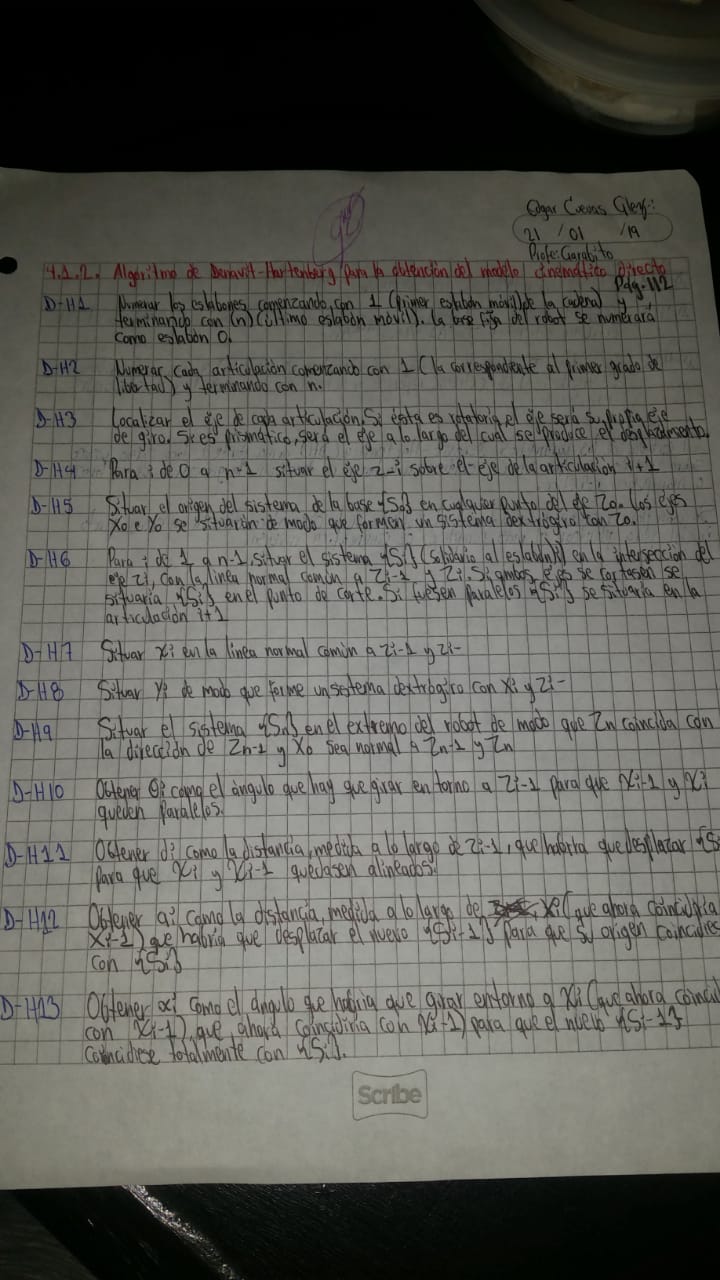 Edgar Cuevas Glez:
21 / 01 /19
Profe: Garabito
4.1.2. Algoritmo de Denavit-Hartenberg para la obtención del modelo cinemático directo
Pág. 112
D-H1 Numerar los eslabones comenzando con 1 (primer eslabón móvil de la cadera) y
terminando con (n) (último eslabón móvil). la base fija del robot se numerará
como eslabón 0.
D-H2 Numerar cada articulación comenzando con 1 (la correspondiente al primer grado de
libertad) y terminando con n.
D-H3 Localizar el eje de cada articulación. Si ésta es rotatoria, el eje será su propio eje
de giro. Si es prismático, será el eje a lo largo del cual se produce el desplazamiento.
D-H4 Para i de 0 a n-1 situar el eje z-i sobre el eje de la articulación i+1
D-H5 Situar el origen del sistema de la base {S0} en cualquier punto del eje Z0. los ejes
X0 e Y0 se situarán de modo que forman un sistema dextrógiro con Z0.
D-H6 Para i de 1 a n-1, situar el sistema {Si} (solidario al eslabón i) en la intersección del
eje Zi, con la línea normal común a Zi-1 y Zi. Si ambos ejes se cortasen se
situaría {Si} en el punto de corte. Si fuesen paralelos {Si} se situaría en la
articulación i+1
D-H7 Situar Xi en la línea normal común a Zi-1 y Zi-
D-H8 Situar Yi de modo que forme un sistema dextrógiro con Xi y Zi-
D-H9 Situar el sistema {Sn} en el extremo del robot de modo que Zn coincida con
la dirección de Zn-1 y Xo sea normal a Zn-1 y Zn
D-H10 Obtener θi como el ángulo que hay que girar en torno a Zi-1 para que Xi-1 y Xi
queden paralelos.
D-H11 Obtener di como la distancia, medida a lo largo de Zi-1, que habría que desplazar {S
para que Xi y Xi-1 quedasen alineados.
D-H12 Obtener ai como la distancia, medida a lo largo de Xi (que ahora coincidiría
Xi-1) que habría que desplazar el nuevo {Si-1} para que su origen coincidies
con {Si}
D-H13 Obtener αi como el ángulo que habría que girar entorno a Xi (que ahora coincidi
con Xi-1), que ahora coincidiría con Xi-1) para que el nuevo {Si-1}
coincidiese totalmente con {Si}.
Scribe